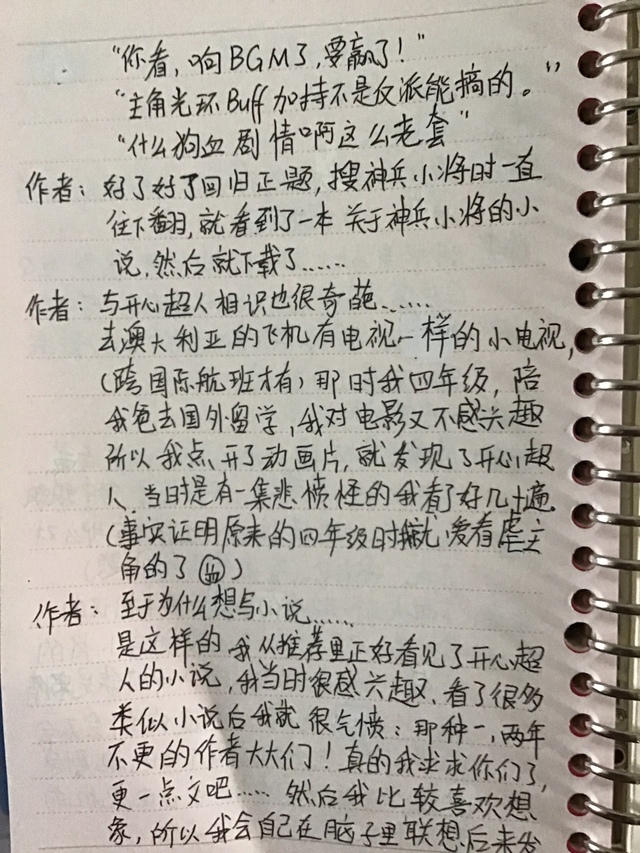 “你看，响BGM了，要赢了！”
“主角光环Buff加持不是反派能搞的。”
“什么狗血剧情啊这么老套”
作者：好了好了回归正题，搜神兵小将时一直
往下翻，就看到了一本关于神兵小将的小
说，然后就下载了……
作者：与开心超人相识也很奇葩……
去澳大利亚的飞机有电视一样的小电视，
（跨国际航班才有）那时我四年级，陪
我爸去国外留学，我对电影又不感兴趣
所以我点开了动画片，就发现了开心超
人，当时是有一集悲愤怪的我看了好几十遍
（事实证明原来的四年级时我就爱看虐主
角的了）
作者：至于为什么想写小说……
是这样的我从推荐里正好看见了开心超
人的小说，我当时很感兴趣，看了很多
类似小说后我就很气愤：那种一，两年
不更的作者大大们！真的我求求你们了，
更一点文吧……然后我比较喜欢想
象，所以我会自己在脑子里联想后来发